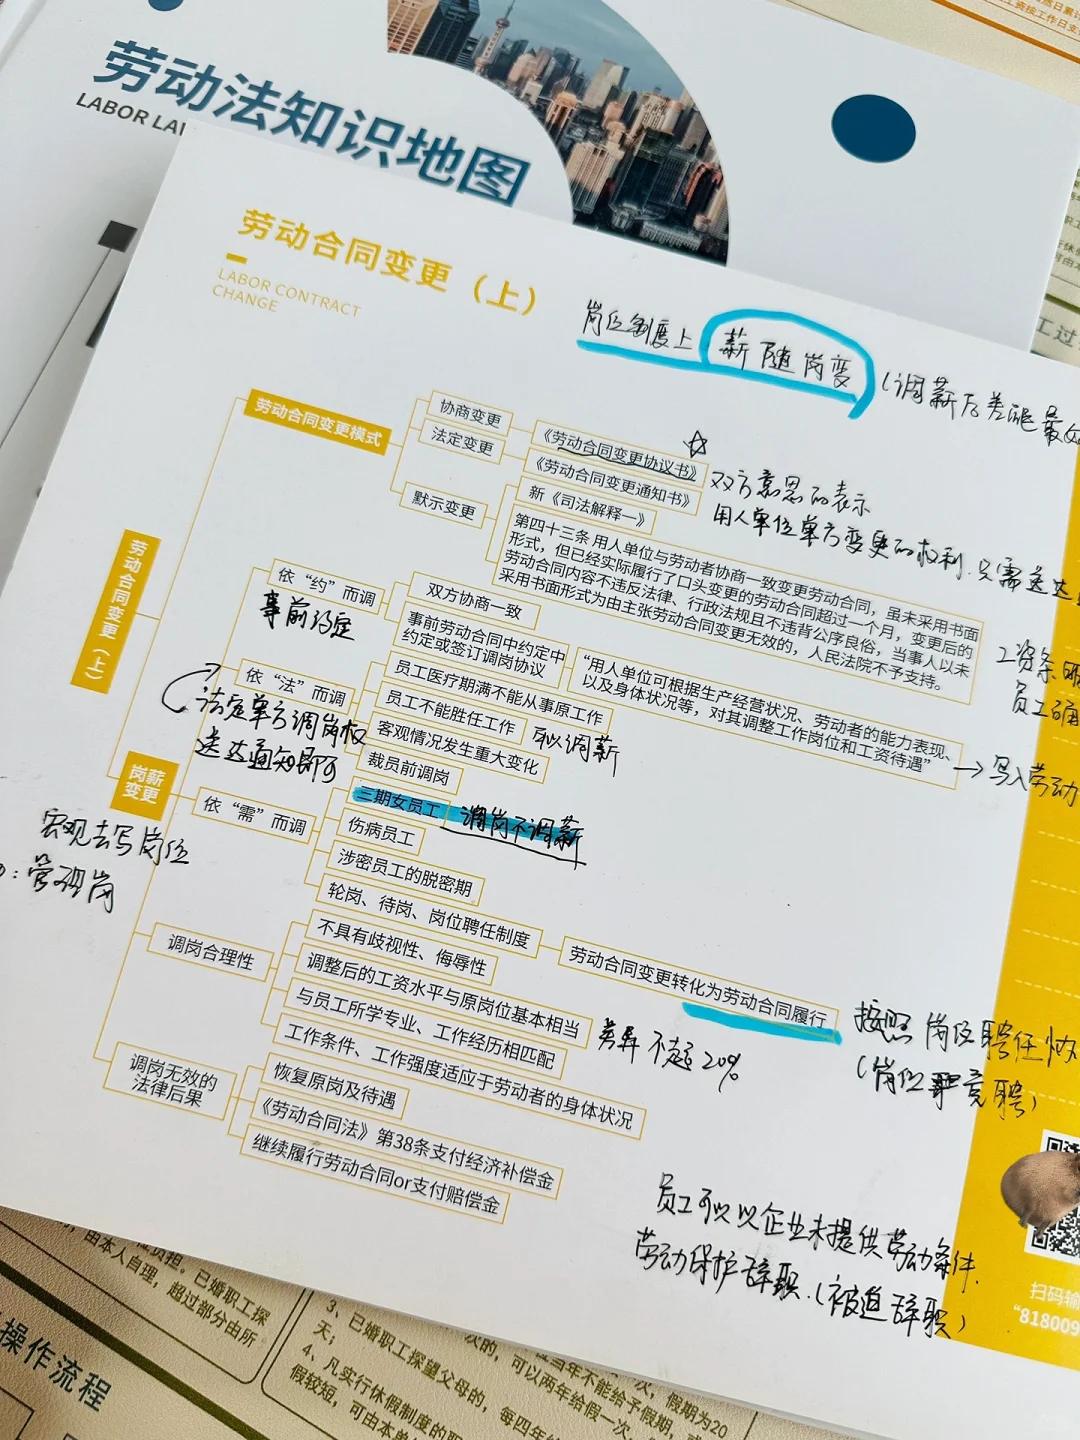 劳动法知识地图
LABOR LA
劳动合同变更（上）
LABOR CONTRACT
CHANGE
岗位制度上 薪随岗变（调薪后差距最
劳动合同变更（上）
劳动合同变更模式
协商变更
《劳动合同变更协议书》
双方意思的表示
法定变更
《劳动合同变更通知书》
用人单位单方变更的权利.只需送达
默示变更
新《司法解释一》
第四十三条 用人单位与劳动者协商一致变更劳动合同，虽未采用书面
形式，但已经实际履行了口头变更的劳动合同超过一个月，变更后的
劳动合同内容不违反法律、行政法规且不违背公序良俗，当事人以未
采用书面形式为由主张劳动合同变更无效的，人民法院不予支持。
工资条
员工确
岗薪
变更
宏观去写岗位
：管理岗
依“约”而调
事前约定
双方协商一致
事前劳动合同中约定中
约定或签订调岗协议
“用人单位可根据生产经营状况、劳动者的能力表现、
以及身体状况等，对其调整工作岗位和工资待遇”
→写入劳动
依“法”而调
法定单方调岗权
送达通知即可
员工医疗期满不能从事原工作
员工不能胜任工作
可以调薪
客观情况发生重大变化
裁员前调岗
依“需”而调
三期女员工
调岗不调薪
伤病员工
涉密员工的脱密期
轮岗、待岗、岗位聘任制度
劳动合同变更转化为劳动合同履行
按照岗位聘任协
（岗位职竞聘）
调岗合理性
不具有歧视性、侮辱性
调整后的工资水平与原岗位基本相当
差异不超20%
与员工所学专业、工作经历相匹配
工作条件、工作强度适应于劳动者的身体状况
调岗无效的
法律后果
恢复原岗及待遇
《劳动合同法》第38条支付经济补偿金
继续履行劳动合同or支付赔偿金
员工可以以企业未提供劳动条件.
劳动保护辞职.（被迫辞职）
扫码输
“818009
工过
负担。已婚职工探
由本人自理，超过部分由所
操作流程
3、已婚职工探望父母的，每四年给
天；
4、凡实行休假制度的职
假较短，可由本单
当年不能给予假期，或
次的，可以两年给假一次，
次，假期为20